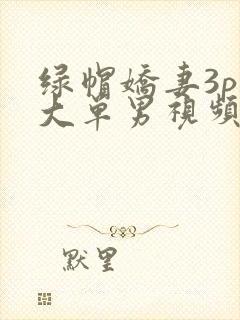 绿帽嬌妻3p
大单男視頻
默里